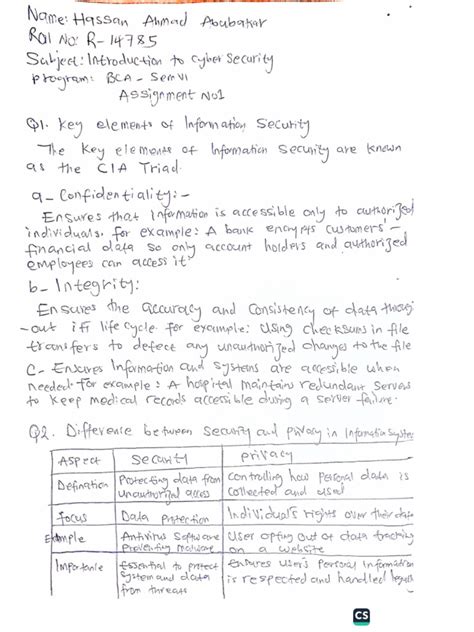 Name: Hassan Ahmad Abubakar
Roll No: R-14785
Subject: Introduction to cyber security
program: BCA - Sem VI
Assignment No1
Q1. Key elements of Information Security
The Key elements of Information Security are known
as the CIA Triad.
a - Confidentiality: -
Ensures that Information is accessible only to authorized
individuals, for example: A bank encrypts customers' -
financial data so only account holders and authorized
employees can access it
b - Integrity:
Ensures the accuracy and Consistency of data throug
-out it life cycle. for example: Using checksums in file
transfers to detect any unauthorized changes to the file
C - Ensures Information and systems are accessible when
needed. for example: A hospital maintains redundant servers
to keep medical records accessible during a server failure.
Q2. Difference between security and privacy in Information System
Aspect Security privacy
Definition Protecting data from controlling how Personal data is
unauthorized access collected and used
Focus Data protection Individual's rights over their data
Example Antivirus Software User opting out of data tracking
Preventing malware on a website
Importance Essential to protect ensures user's personal Information
system and data is respected and handled
from threats
CS